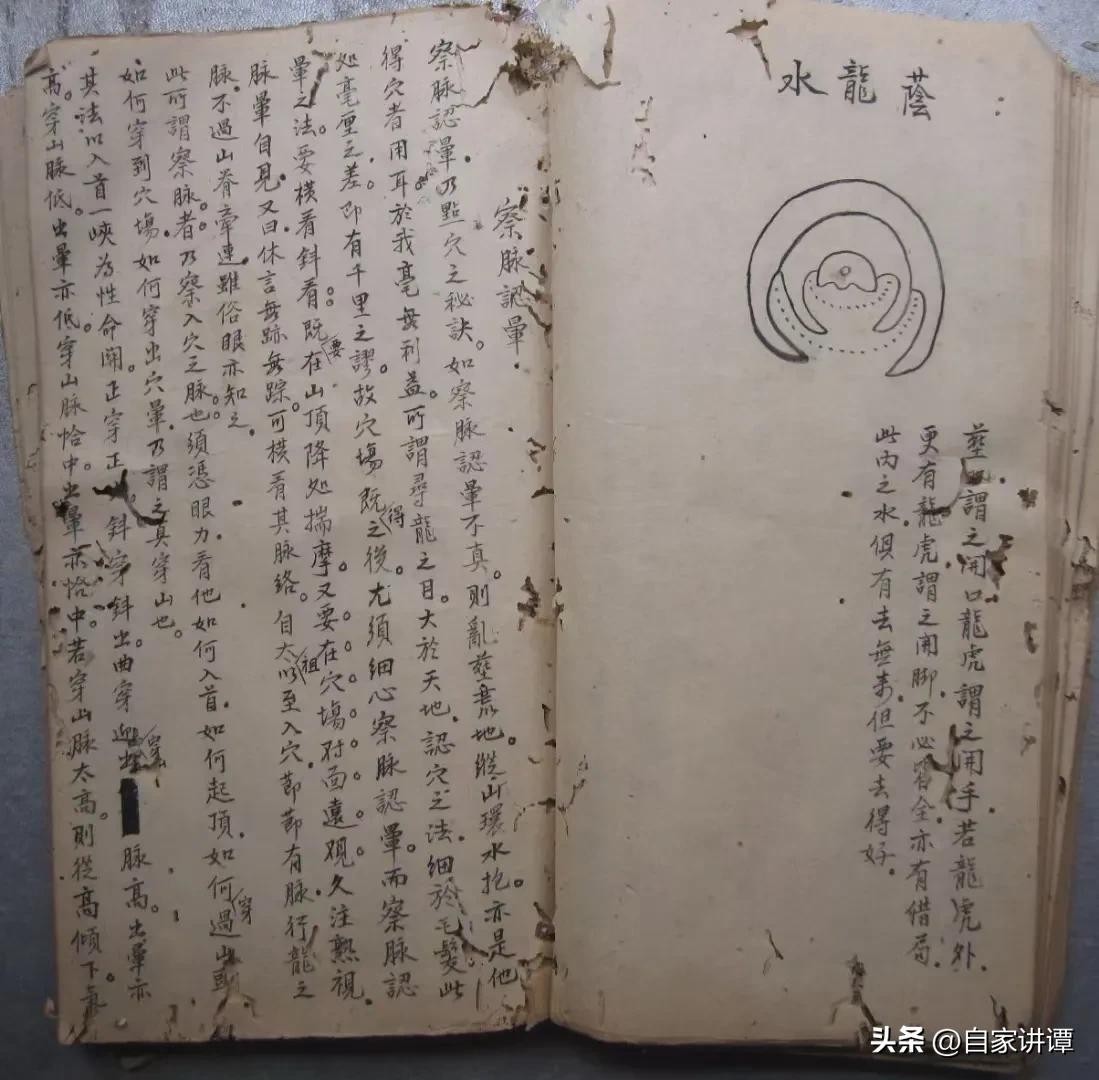 蔭龍水
謂之開口龍虎謂之開手若龍虎外
更有龍虎謂之開脚不必全亦有借局
此內之水俱有去無來但要去得好
察脉認暈
察脉認暈乃點穴之秘訣。如察脉認暈不真。則亂塟地。縱山環水抱。亦是他
得穴者用耳於我毫無利益。所謂尋龍之目。大於天地、認穴之法細於毛髮此
処毫厘之差。即有千里之謬。故穴塲既得之後。尤須細心察脉認暈。而察脉認
暈之法。要橫看斜看。既要在山頂降処揣摩。又要在穴塲对面遠观久注熟視
脉暈自見。又曰休言無跡無踪。可橫看其脉絡。自太祖以至入穴。節節有脉行龍之
脉。不過山脊牽連雖俗眼亦知之
此所謂察脉。者乃察入穴之脉也須憑眼力看他如何入首。如何起頂。如何穿過山頭
如何穿到穴塲。如何穿出穴暈。乃謂之真穿山也。
其法以入首一峽為性命關。正穿正斜穿斜出曲穿脉高。出暈亦
高。穿山脉低。出暈亦低。穿山脉恰中。出暈亦恰中。若穿山脉太高。則從高傾下。氣
头条 @自家讲谭